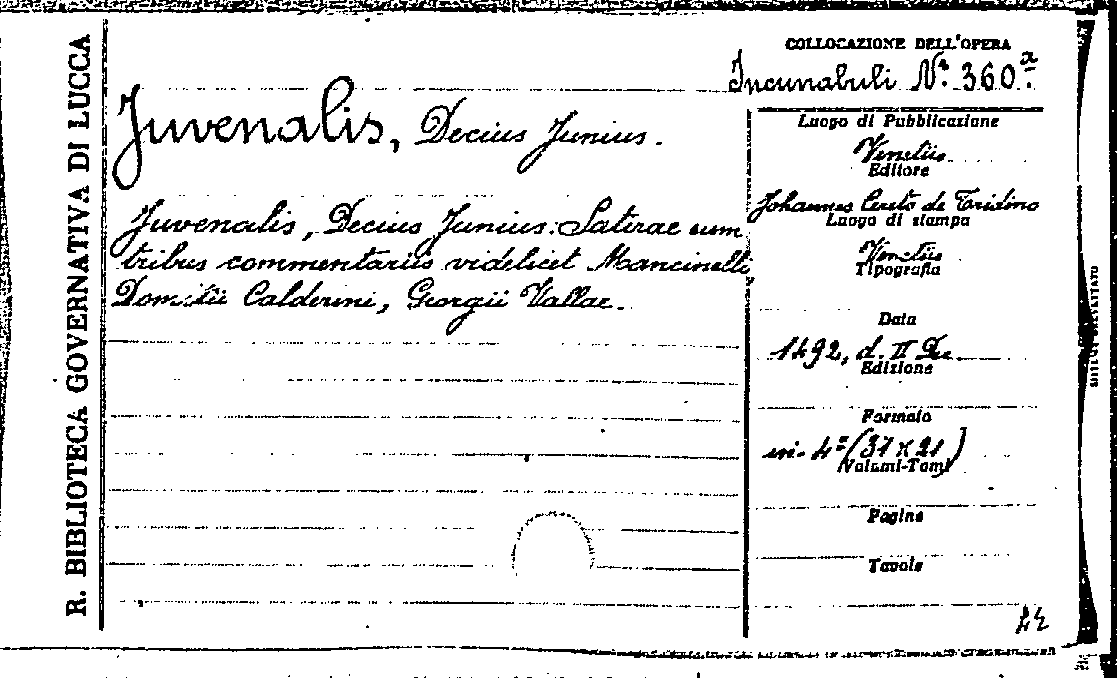 R. BIBLIOTECA GOVERNATIVA DI LUCCA
COLLOCAZIONE DELL'OPERA
Incunabuli N.º 360.ª
Juvenalis, Decius Junius.
Juvenalis, Decius Junius: Satirae cum
tribus commentariis videlicet Mancinelli,
Domitii Calderini, Georgii Vallae.
Luogo di Pubblicazione
Venetiis
Editore
Johannes Cereto de Tridino
Luogo di stampa
Venetiis
Tipografia
Data
1492, d. II De
Edizione
Formato
in-4º (31 x 21)
Volumi-Tomi
Pagine
Tavole